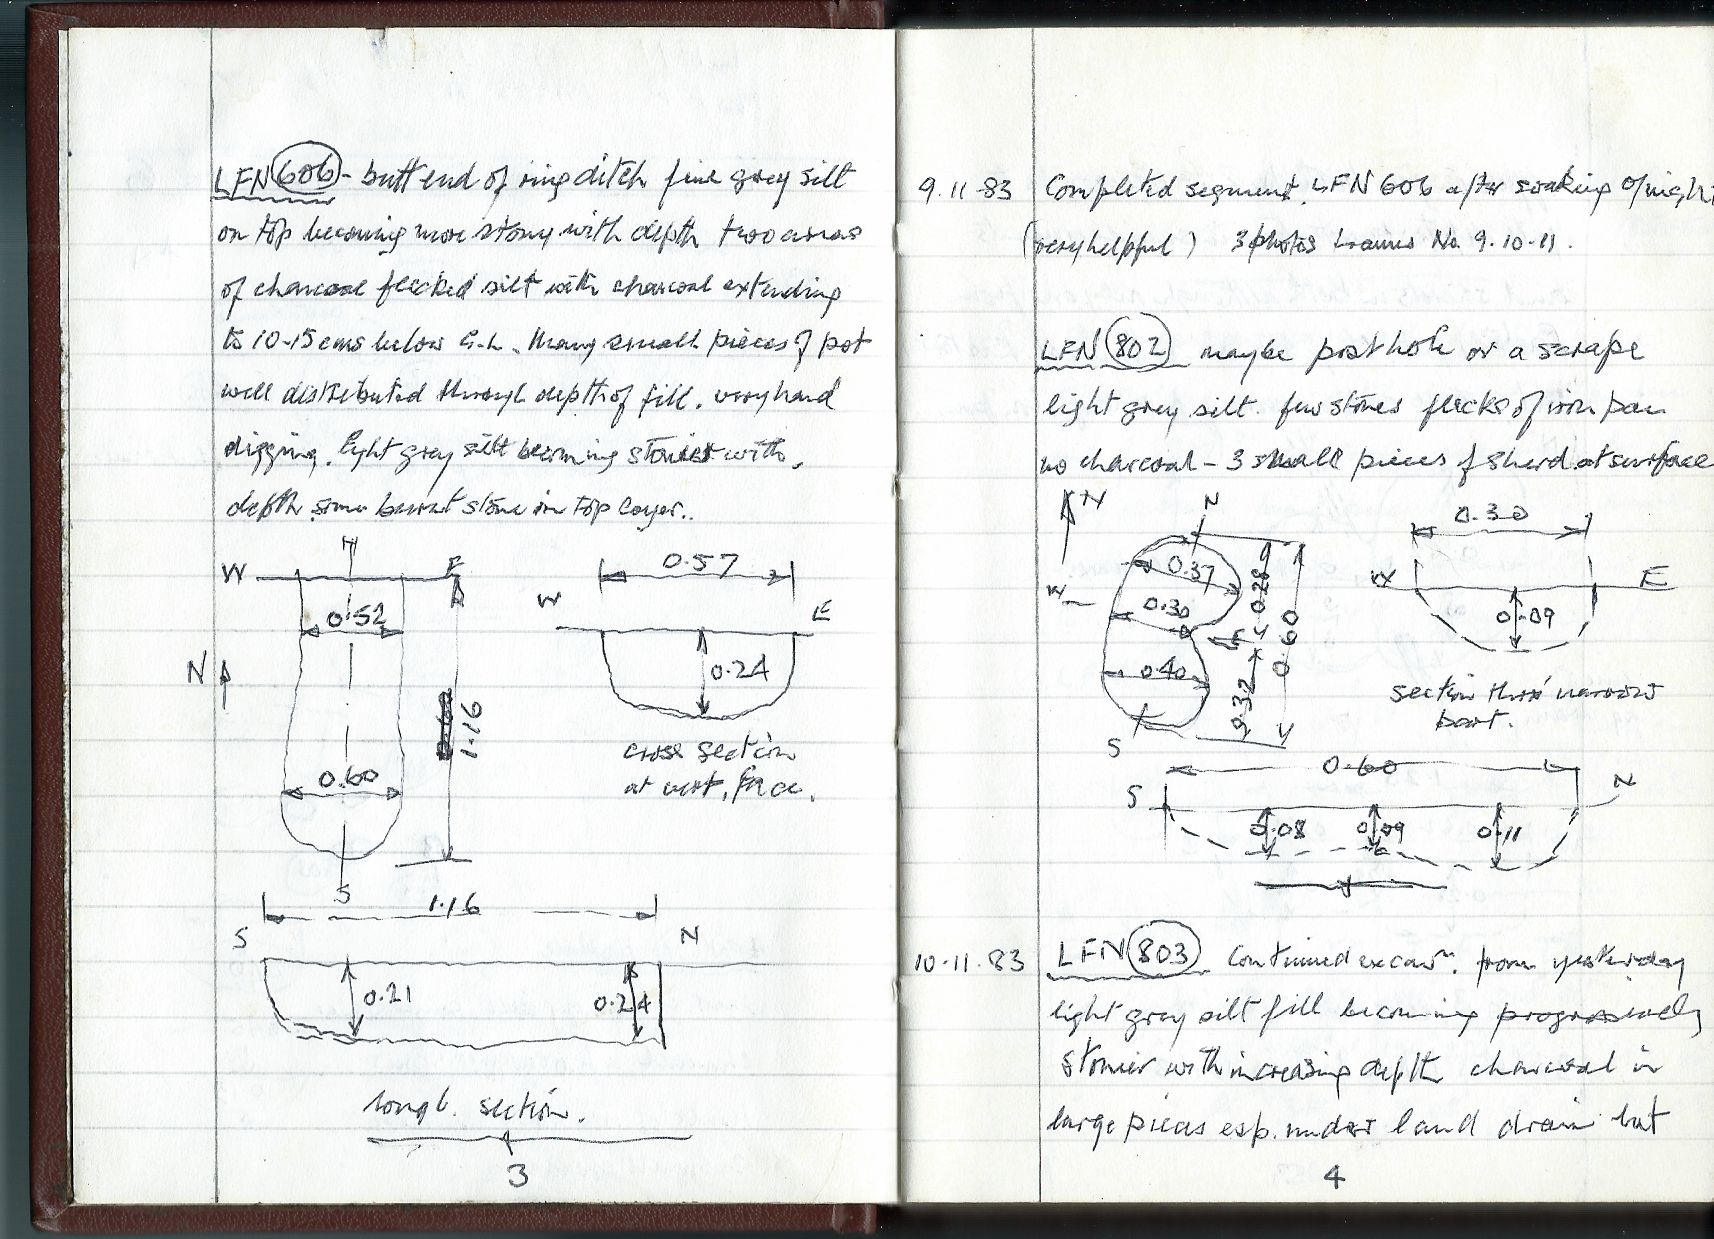 LFN 606 - butt end of ring ditch fine grey silt
on top becoming more stony with depth two areas
of charcoal flecked silt with charcoal extending
to 10-15 cms below G.L. Many small pieces of pot
well distributed through depth of fill. very hard
digging. light grey silt becoming stonier with
depth some burnt stone in top layer..
W E
0.52
N
1.16
0.60
S
0.57
W E
0.24
cross section
at vert. face.
1.16
S N
0.21
0.24
longt. section.
3
9.11.83 Completed segment. LFN 606 after soaking o/night
(very helpful) 3 photos frames No. 9.10.11.
LFN 802 maybe post hole or a scrape
light grey silt. few stones flecks of iron pan
no charcoal - 3 small pieces of sherd at surface
N
N
W
0.37
0.30
0.40
0.28
0.60
0.32
S
0.30
W E
0.09
section thro' narrow
part.
0.60
S N
0.08 0.09 0.11
10.11.83 LFN 803 Continued excavn. from yesterday
light grey silt fill becoming progressively
stonier with increasing depth charcoal in
large pieces esp. under land drain but
4